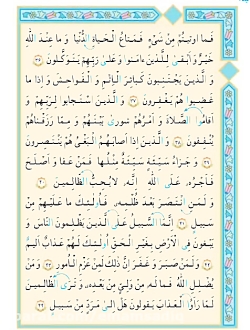 فَمَا أُوتِيتُمْ مِنْ شَيْءٍ فَمَتَاعُ الْحَيَاةِ الدُّنْيَا وَ مَا عِنْدَ اللَّهِ
خَيْرٌ وَ أَبْقَى لِلَّذِينَ آمَنُوا وَ عَلَى رَبِّهِمْ يَتَوَكَّلُونَ ٣٦
وَ الَّذِينَ يَجْتَنِبُونَ كَبَائِرَ الْإِثْمِ وَ الْفَوَاحِشَ وَ إِذَا مَا
غَضِبُوا هُمْ يَغْفِرُونَ ٣٧ وَ الَّذِينَ اسْتَجَابُوا لِرَبِّهِمْ وَ
أَقَامُوا الصَّلَاةَ وَ أَمْرُهُمْ شُورَى بَيْنَهُمْ وَ مِمَّا رَزَقْنَاهُمْ
يُنْفِقُونَ ٣٨ وَ الَّذِينَ إِذَا أَصَابَهُمُ الْبَغْيُ هُمْ يَنْتَصِرُونَ
٣٩ وَ جَزَاءُ سَيِّئَةٍ سَيِّئَةٌ مِثْلُهَا فَمَنْ عَفَا وَ أَصْلَحَ
فَأَجْرُهُ عَلَى اللَّهِ إِنَّهُ لَا يُحِبُّ الظَّالِمِينَ ٤٠
وَ لَمَنِ انْتَصَرَ بَعْدَ ظُلْمِهِ فَأُولَئِكَ مَا عَلَيْهِمْ مِنْ
سَبِيلٍ ٤١ إِنَّمَا السَّبِيلُ عَلَى الَّذِينَ يَظْلِمُونَ النَّاسَ وَ
يَبْغُونَ فِي الْأَرْضِ بِغَيْرِ الْحَقِّ أُولَئِكَ لَهُمْ عَذَابٌ أَلِيمٌ
٤٢ وَ لَمَنْ صَبَرَ وَ غَفَرَ إِنَّ ذَلِكَ لَمِنْ عَزْمِ الْأُمُورِ ٤٣ وَ مَنْ
يُضْلِلِ اللَّهُ فَمَا لَهُ مِنْ وَلِيٍّ مِنْ بَعْدِهِ وَ تَرَى الظَّالِمِينَ
لَمَّا رَأَوُا الْعَذَابَ يَقُولُونَ هَلْ إِلَى مَرَدٍّ مِنْ سَبِيلٍ ٤٤